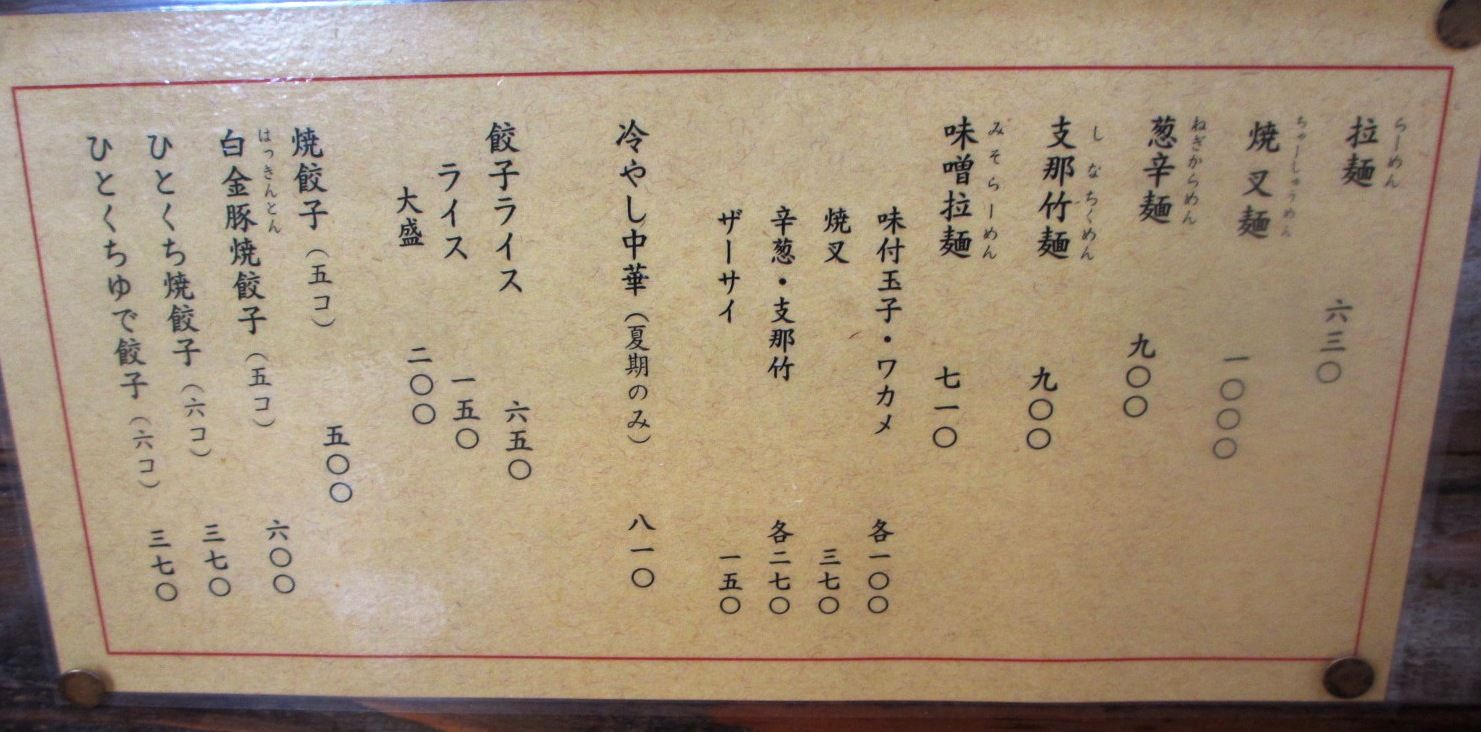 らーめん
拉麺 六三〇
ちゃーしゅうめん
焼叉麺 一〇〇〇
ねぎからめん
葱辛麺 九〇〇
しなちくめん
支那竹麺 九〇〇
みそらーめん
味噌拉麺 七一〇
味付玉子・ワカメ 各一〇〇
焼叉 三七〇
辛葱・支那竹 各二七〇
ザーサイ 一五〇
冷やし中華（夏期のみ） 八一〇
餃子ライス 六五〇
ライス 一五〇
大盛 二〇〇
焼餃子（五コ） 五〇〇
はっきんとん
白金豚焼餃子（五コ） 六〇〇
ひとくち焼餃子（六コ） 三七〇
ひとくちゆで餃子（六コ） 三七〇